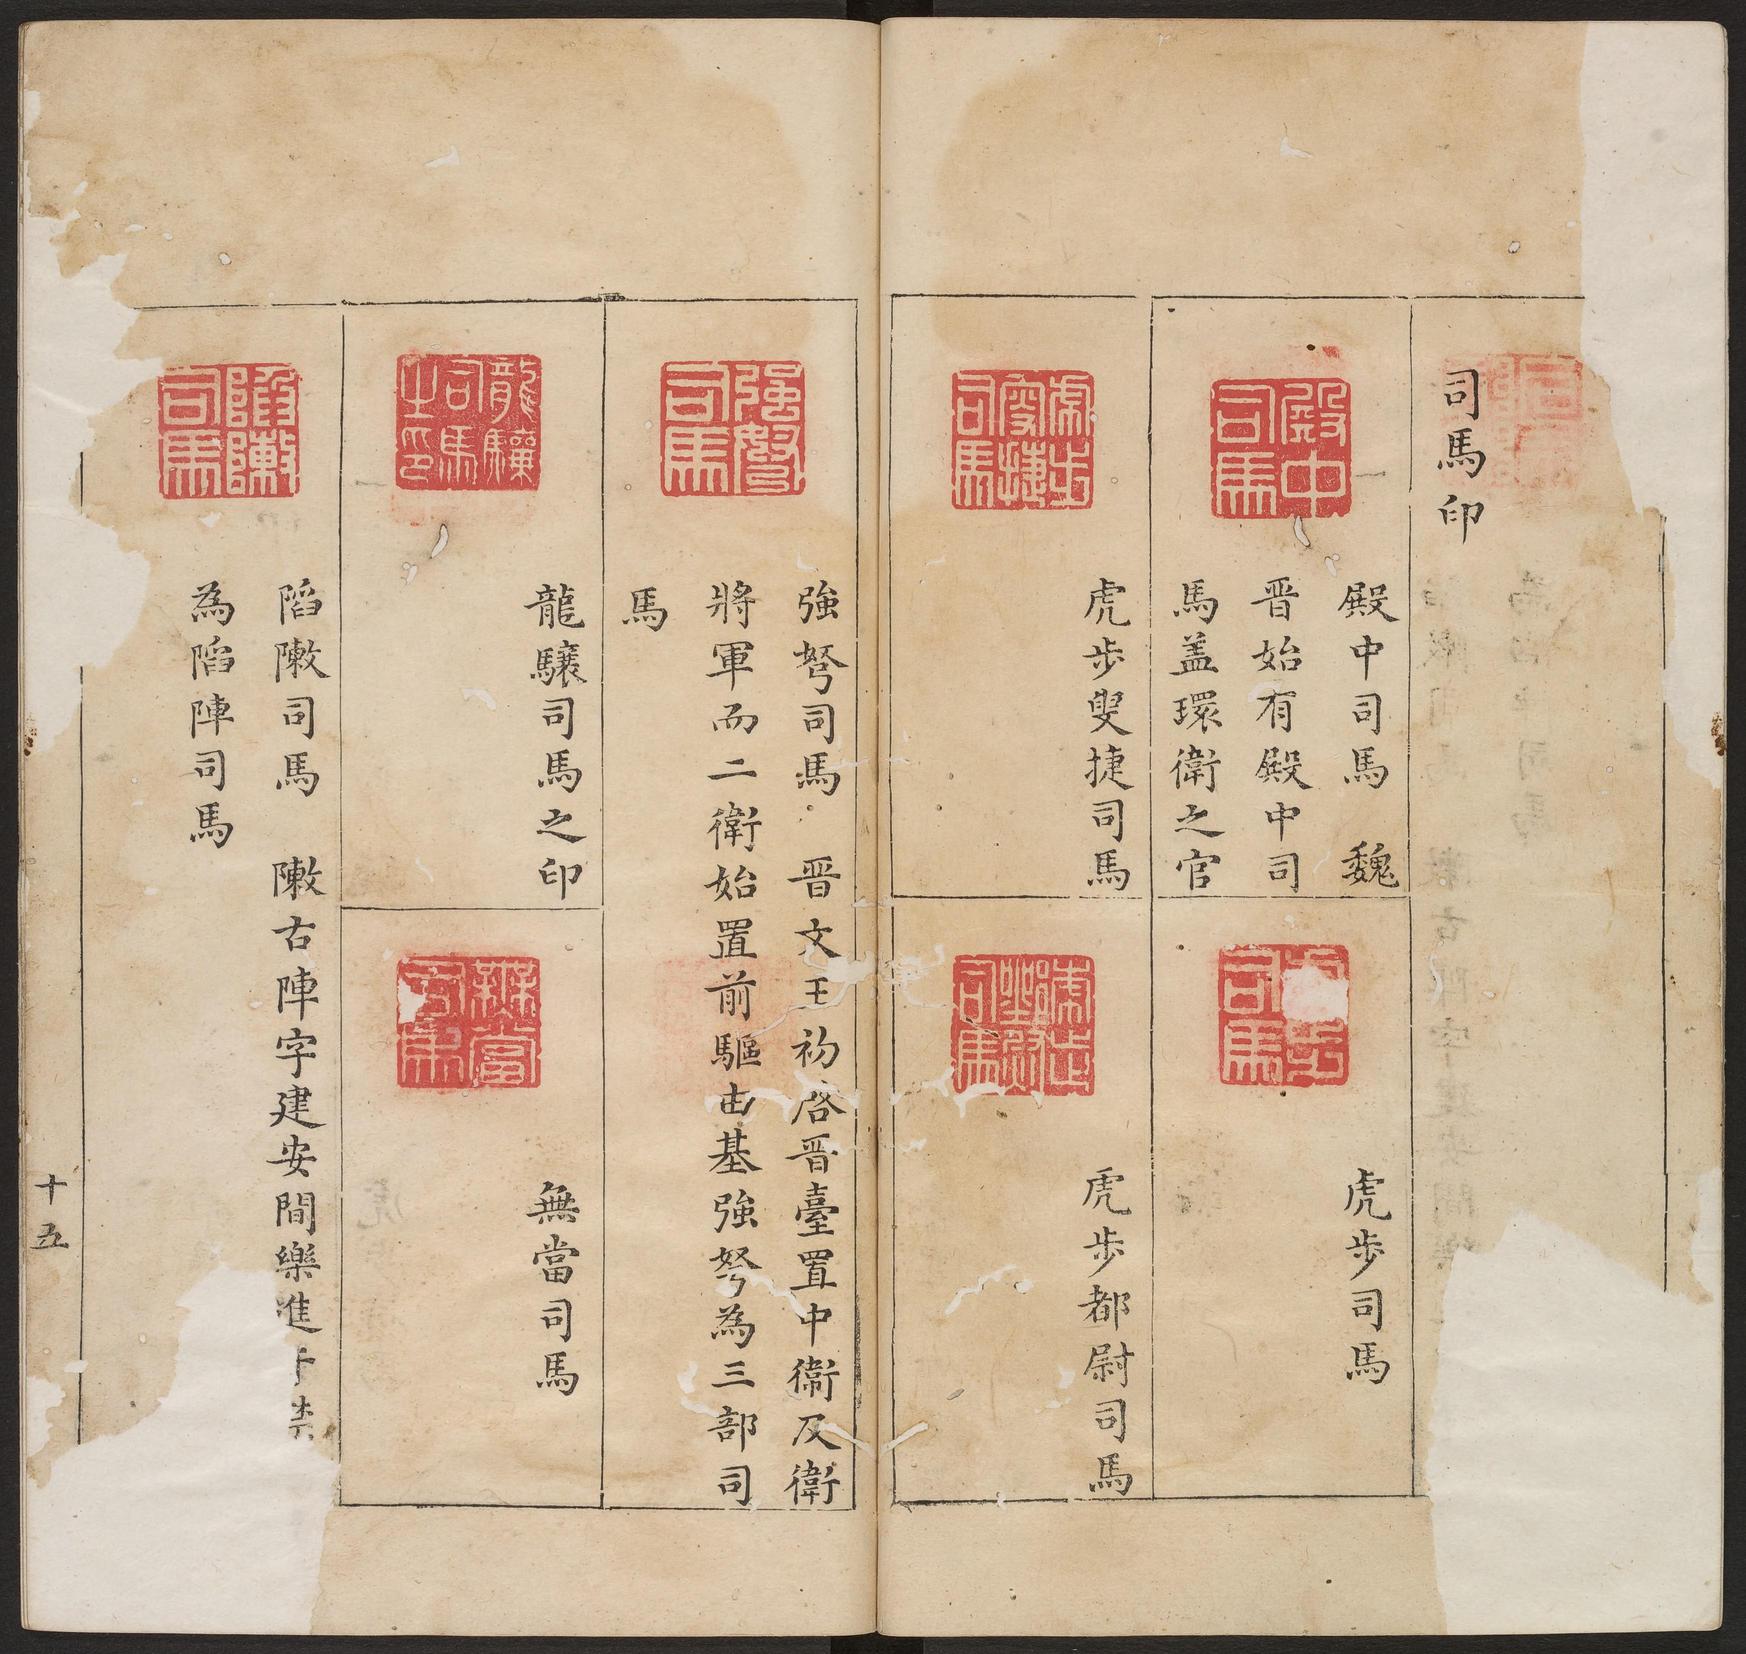 司馬印
殿中司馬　魏
晉始有殿中司
馬蓋環衛之官
虎步司馬
虎步叟捷司馬
虎步都尉司馬
強弩司馬　晉文王初啓晉臺置中衛及衛
將軍而二衛始置前驅由基強弩為三部司
馬
龍驤司馬之印
無當司馬
䧟敶司馬　敶古陣字建安間樂進于禁
為䧟陣司馬
十五
殿中司馬
虎步叟捷司馬
強弩司馬
龍驤司馬之印
䧟敶司馬